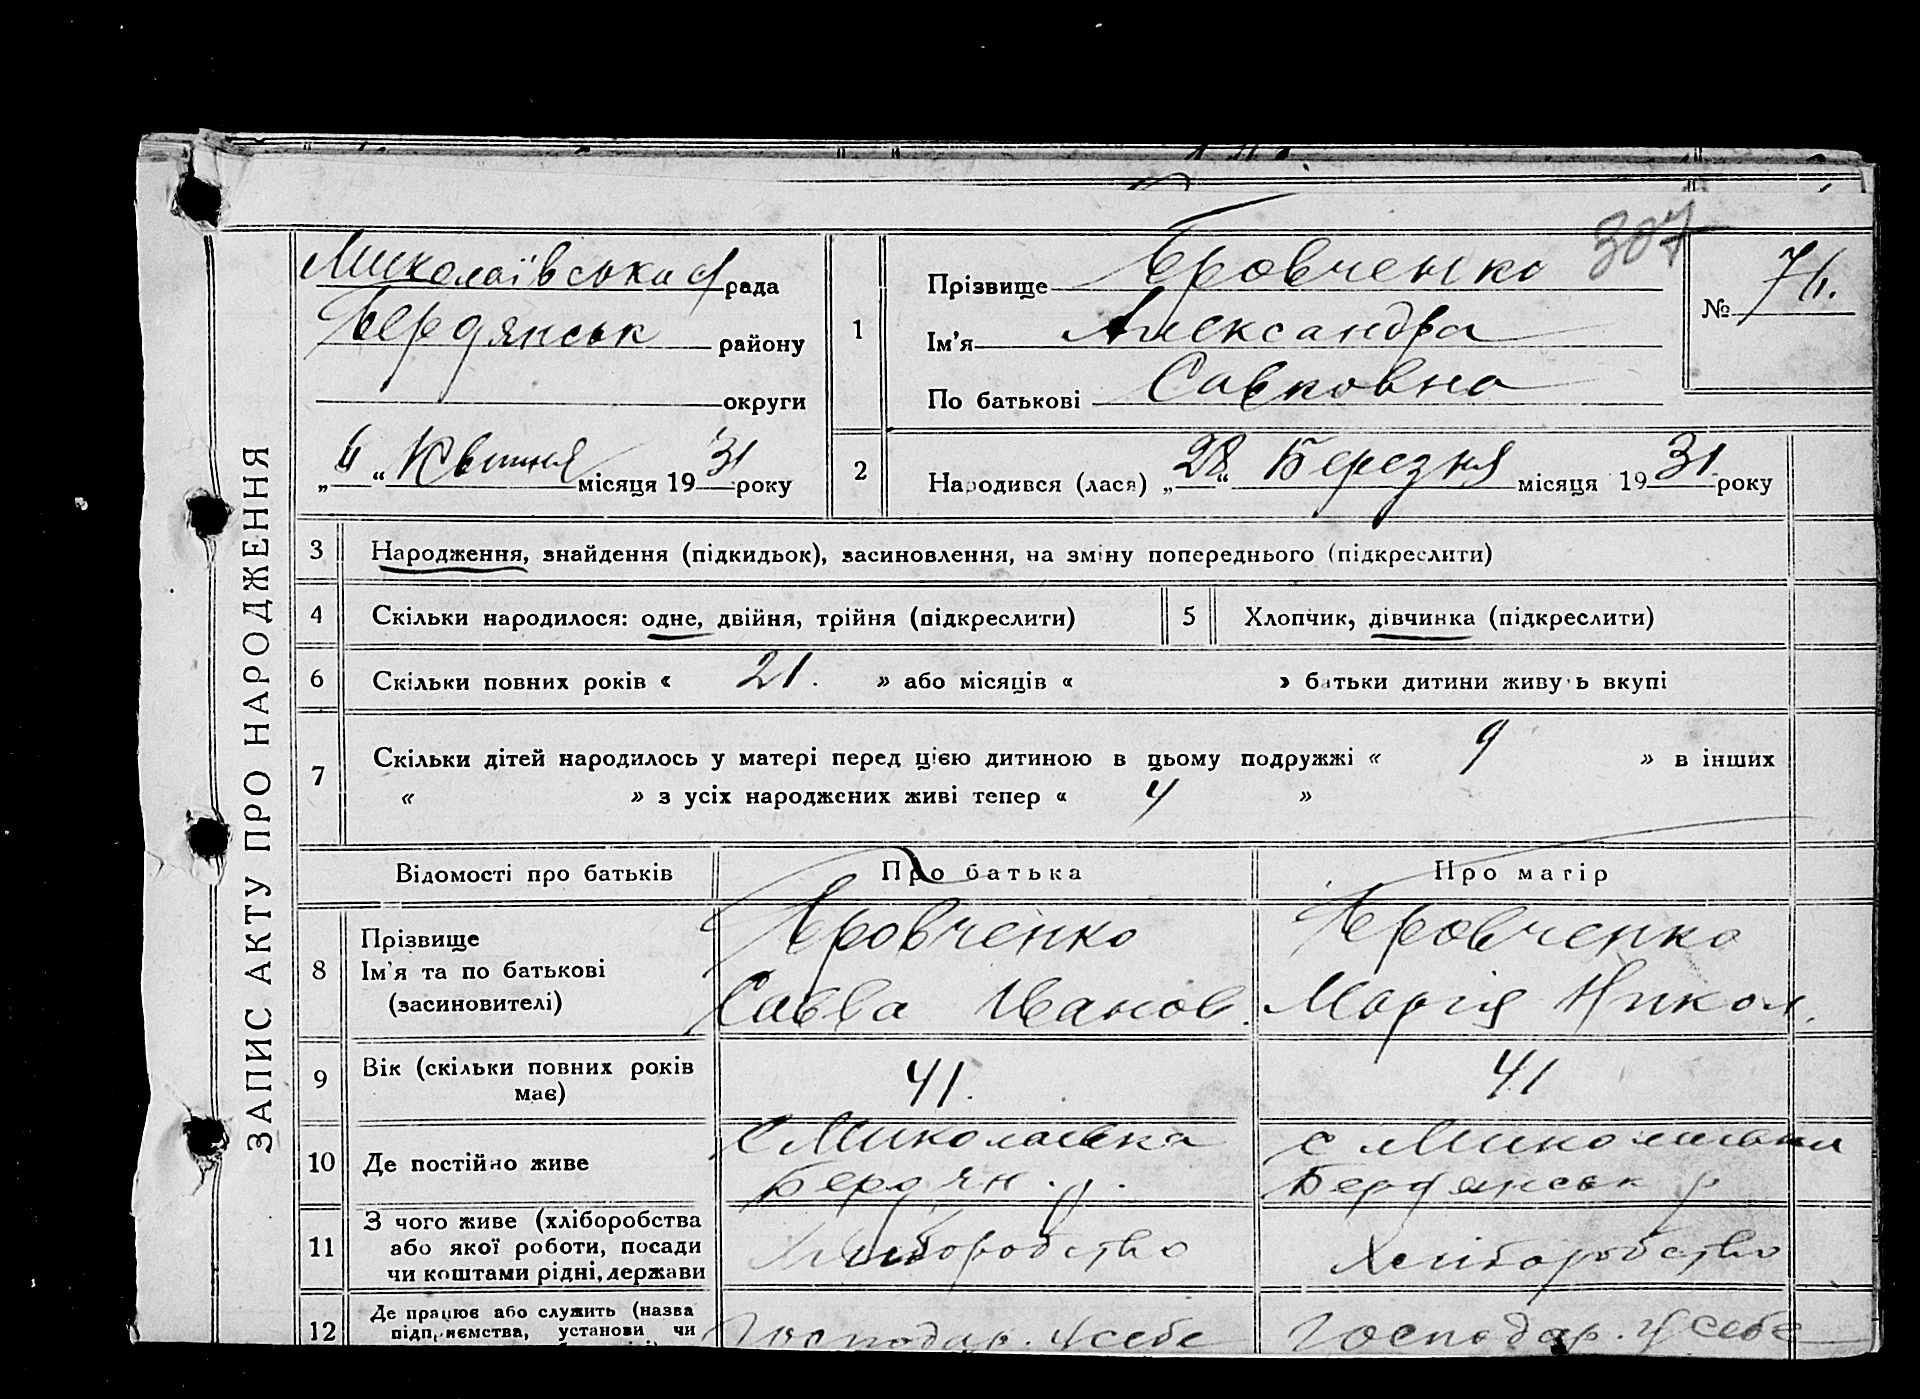 ЗАПИС АКТУ ПРО НАРОДЖЕННЯ
307
Миколаївська рада
Бердянськ району
округи
„6“ Квітня місяця 1931 року
1
Прізвище Бровченко
Ім'я Александра
По батькові Савовна
№ 76.
2
Народився (лася) „28“ Березня місяця 1931 року
3 Народження, знайдення (підкидьок), засиновлення, на зміну попереднього (підкреслити)
4 Скільки народилося: одне, двійня, трійня (підкреслити)
5 Хлопчик, дівчинка (підкреслити)
6 Скільки повних років « 21. » або місяців « » батьки дитини живуть вкупі
7 Скільки дітей народилось у матері перед цією дитиною в цьому подружжі « 9 » в інших
« » з усіх народжених живі тепер « 4 »
Відомості про батьків Про батька Про матір
8 Прізвище
Ім'я та по батькові
(засиновителі)
Бровченко
Савва Іванов.
Бровченко
Марія Никол.
9 Вік (скільки повних років
має)
41.
41
10 Де постійно живе
с Миколаївка
Бердян. р.
с Миколаївка
Бердянськ р.
11 З чого живе (хліборобства
або якої роботи, посади
чи коштами рідні, держави
Хліборобство
Хліборобство
12 Де працює або служить (назва
підприємства, установи чи
Господар. у себе
Господар. у себе